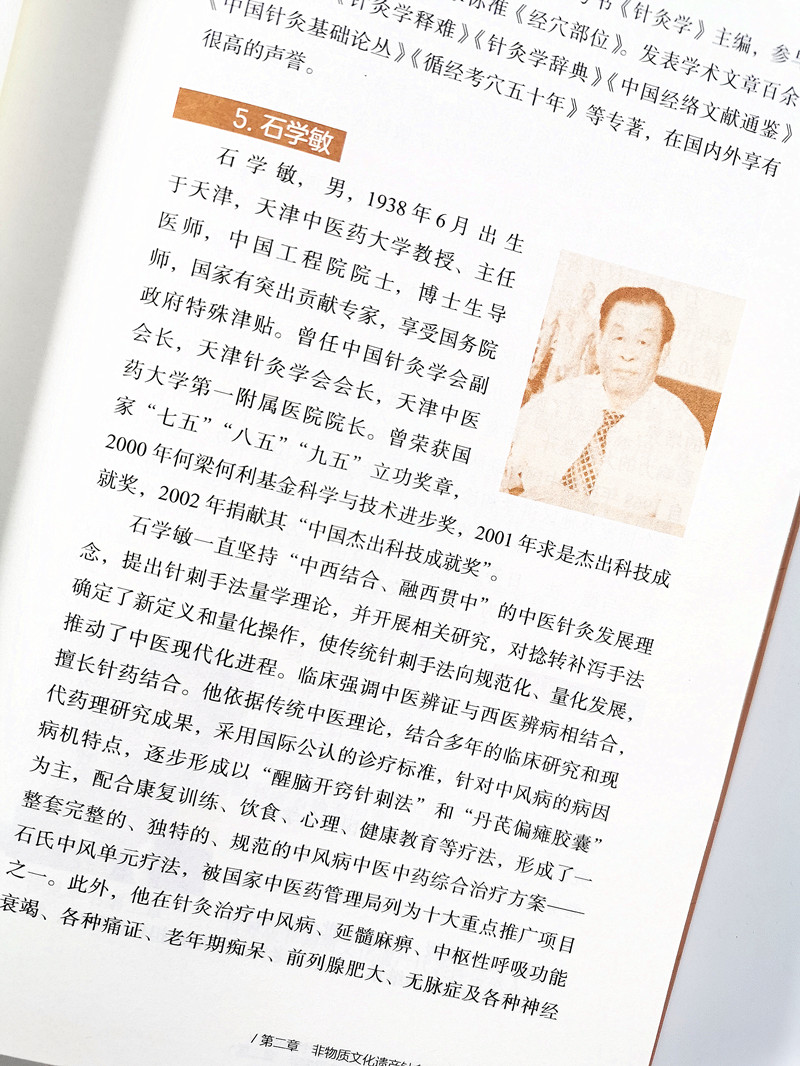 标准《经穴部位》。发表学术文章百余
书《针灸学》主编，参与
《中国针灸基础论丛》《针灸学释难》《针灸学辞典》《中国经络文献通鉴》
《循经考穴五十年》等专著，在国内外享有
很高的声誉。
5. 石学敏
石学敏，男，1938年6月出生
于天津，天津中医药大学教授、主任
医师，中国工程院院士，博士生导
师，国家有突出贡献专家，享受国务院
政府特殊津贴。曾任中国针灸学会副
会长，天津针灸学会会长，天津中医
药大学第一附属医院院长。曾荣获国
家“七五”“八五”“九五”立功奖章，
2000年何梁何利基金科学与技术进步奖，2001年求是杰出科技成
就奖，2002年捐献其“中国杰出科技成就奖”。
石学敏一直坚持“中西结合、融西贯中”的中医针灸发展理
念，提出针刺手法量学理论，并开展相关研究，对捻转补泻手法
确定了新定义和量化操作，使传统针刺手法向规范化、量化发展，
推动了中医现代化进程。临床强调中医辨证与西医辨病相结合，
擅长针药结合。他依据传统中医理论，结合多年的临床研究和现
代药理研究成果，采用国际公认的诊疗标准，针对中风病的病因
病机特点，逐步形成以“醒脑开窍针刺法”和“丹芪偏瘫胶囊”
为主，配合康复训练、饮食、心理、健康教育等疗法，形成了一
整套完整的、独特的、规范的中风病中医中药综合治疗方案——
石氏中风单元疗法，被国家中医药管理局列为十大重点推广项目
之一。此外，他在针灸治疗中风病、延髓麻痹、中枢性呼吸功能
衰竭、各种痛证、老年期痴呆、前列腺肥大、无脉症及各种神经
/ 第二章 非物质文化遗产针